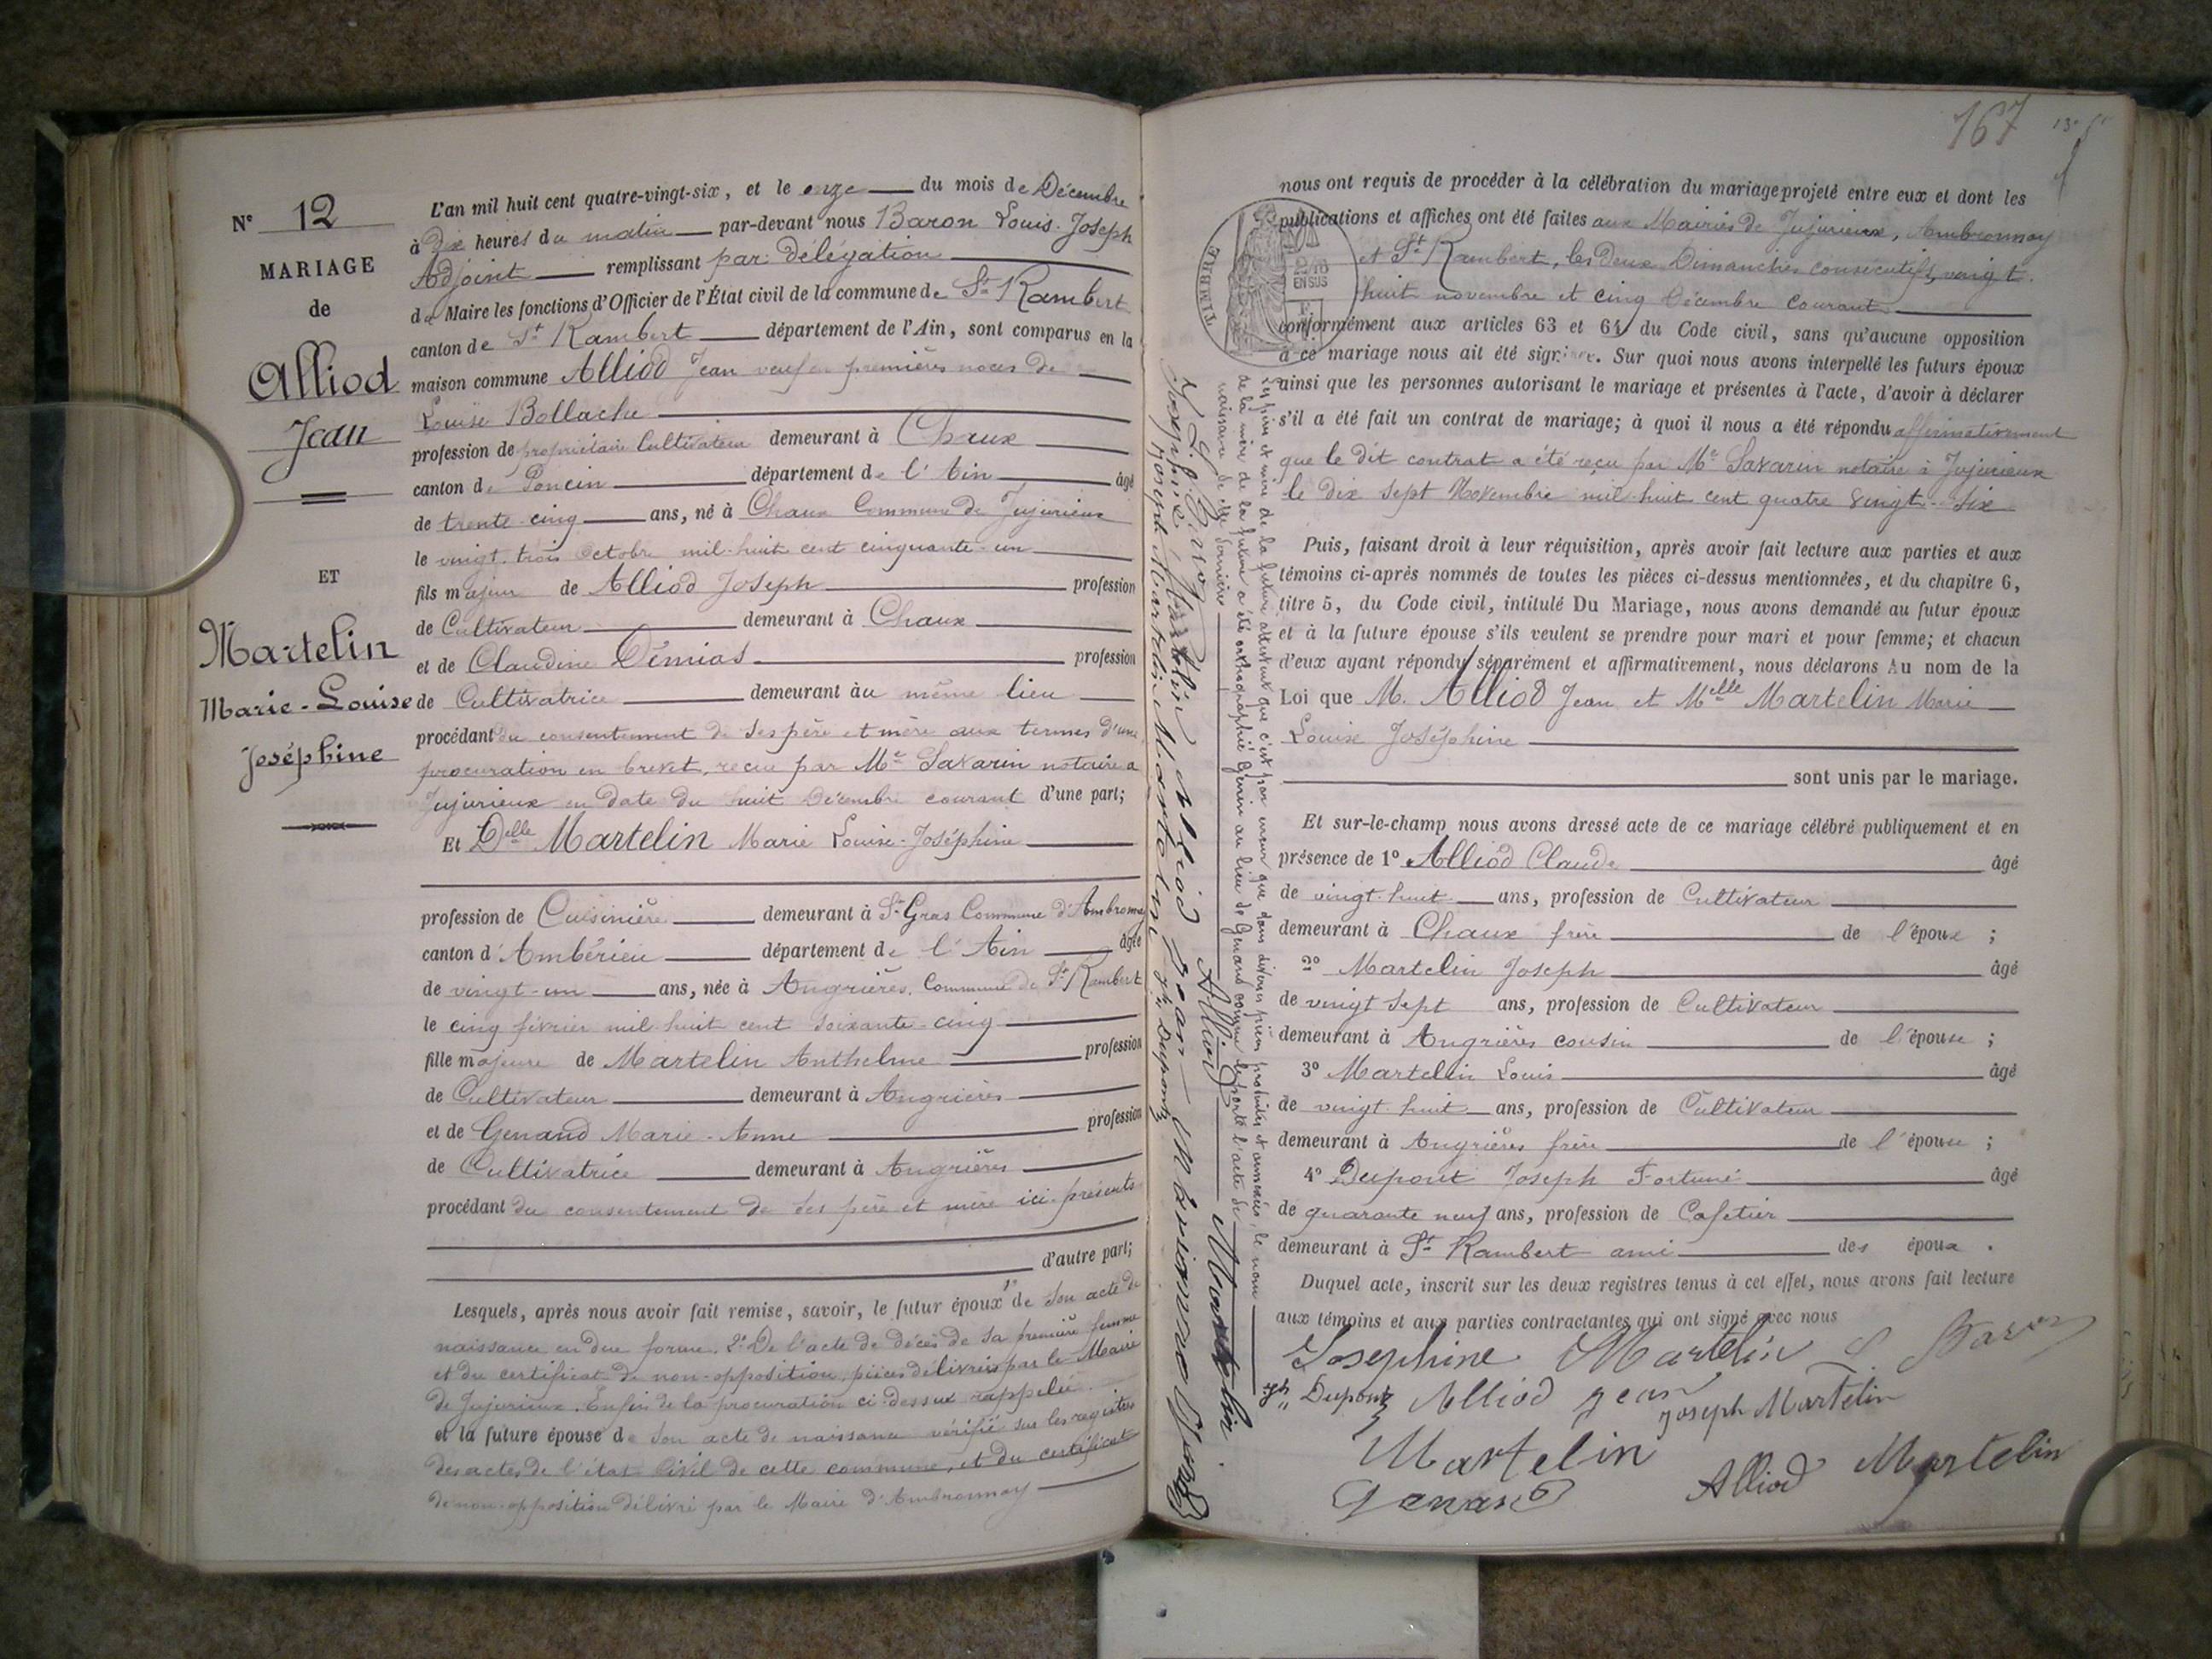 N° 12
MARIAGE
de
Alliod
Jean
ET
Martelin
Marie-Louise
Joséphine
L'an mil huit cent quatre-vingt-six, et le onze du mois de Décembre
à dix heures du matin par-devant nous Baron Louis-Joseph
Adjoint remplissant par délégation
du Maire les fonctions d'Officier de l'État civil de la commune de St Rambert
canton de St Rambert département de l'Ain, sont comparus en la
maison commune Alliod Jean veuf en premières noces de
Louise Bollache
profession de propriétaire Cultivateur demeurant à Chaux
canton de Poncin département de l'Ain âgé
de trente-cinq ans, né à Chaux Commune de Jujurieux
le vingt-trois Octobre mil-huit cent cinquante-un
fils majeur de Alliod Joseph profession
de Cultivateur demeurant à Chaux
et de Claudine Démias profession
de Cultivatrice demeurant au même lieu
procédant du consentement de ses père et mère aux termes d'une
procuration en brevet, reçue par Me Savarin notaire a
Jujurieux en date du huit Décembre courant d'une part;
Et Delle Martelin Marie Louise-Joséphine
profession de Cuisinière demeurant à St Gras Commune d'Ambronay
canton d'Ambérieu département de l'Ain âgée
de vingt-un ans, née à Angrières, Commune de St Rambert
le cinq février mil-huit cent soixante-cinq
fille majeure de Martelin Anthelme profession
de Cultivateur demeurant à Angrières
et de Genand Marie-Anne profession
de Cultivatrice demeurant à Angrières
procédant du consentement de ses père et mère ici-présents
d'autre part;
Lesquels, après nous avoir fait remise, savoir, le futur époux 1° de son acte de
naissance en due forme. 2° De l'acte de décès de sa première femme
et du certificat de non-opposition, pièces délivrées par le Maire
de Jujurieux. Enfin de la procuration ci-dessus rappelée
et la future épouse de son acte de naissance vérifié sur les registres
des actes de l'état civil de cette commune, et du certificat
de non-opposition délivré par le Maire d'Ambronnay
167
TIMBRE
2/10
EN SUS
nous ont requis de procéder à la célébration du mariage projeté entre eux et dont les
publications et affiches ont été faites aux Mairies de Jujurieux, Ambronnay
et St Rambert, les deux Dimanches consécutifs, vingt-
huit novembre et cinq Décembre courant
conformément aux articles 63 et 64 du Code civil, sans qu'aucune opposition
à ce mariage nous ait été signifiée. Sur quoi nous avons interpellé les futurs époux
ainsi que les personnes autorisant le mariage et présentes à l'acte, d'avoir à déclarer
s'il a été fait un contrat de mariage; à quoi il nous a été répondu affirmativement
que le dit contrat a été reçu par Me Savarin notaire à Jujurieux
le dix sept Novembre mil-huit cent quatre vingt-six
Puis, faisant droit à leur réquisition, après avoir fait lecture aux parties et aux
témoins ci-après nommés de toutes les pièces ci-dessus mentionnées, et du chapitre 6,
titre 5, du Code civil, intitulé Du Mariage, nous avons demandé au futur époux
et à la future épouse s'ils veulent se prendre pour mari et pour femme; et chacun
d'eux ayant répondu séparément et affirmativement, nous déclarons Au nom de la
Loi que M. Alliod Jean et Melle Martelin Marie
Louise Joséphine
sont unis par le mariage.
Et sur-le-champ nous avons dressé acte de ce mariage célébré publiquement et en
présence de 1° Alliod Claude âgé
de vingt-huit ans, profession de Cultivateur
demeurant à Chaux frère de l'époux ;
2° Martelin Joseph âgé
de vingt sept ans, profession de Cultivateur
demeurant à Angrières cousin de l'épouse ;
3° Martelin Louis âgé
de vingt-huit ans, profession de Cultivateur
demeurant à Angrières frère de l'épouse ;
4° Dupont Joseph Fortuné âgé
de quarante neuf ans, profession de Cafetier
demeurant à St Rambert ami des époux .
Duquel acte, inscrit sur les deux registres tenus à cet effet, nous avons fait lecture
aux témoins et aux parties contractantes qui ont signé avec nous
Josephine Martelin L. Baron
jh Dupont Alliod jean joseph Martelin
Martelin
Genand Alliod Martelin
Les père et mère de la future attestent que c'est par erreur que dans divers pièces produites et annexées, le nom
de la mère de la future a été orthographié Genin au lieu de Genand comme le porte l'acte de
naissance de cette dernière
L. Baron Alliod Martelin
Josephine Martelin alliod jean
joseph Martelin Martelin jh Dupont